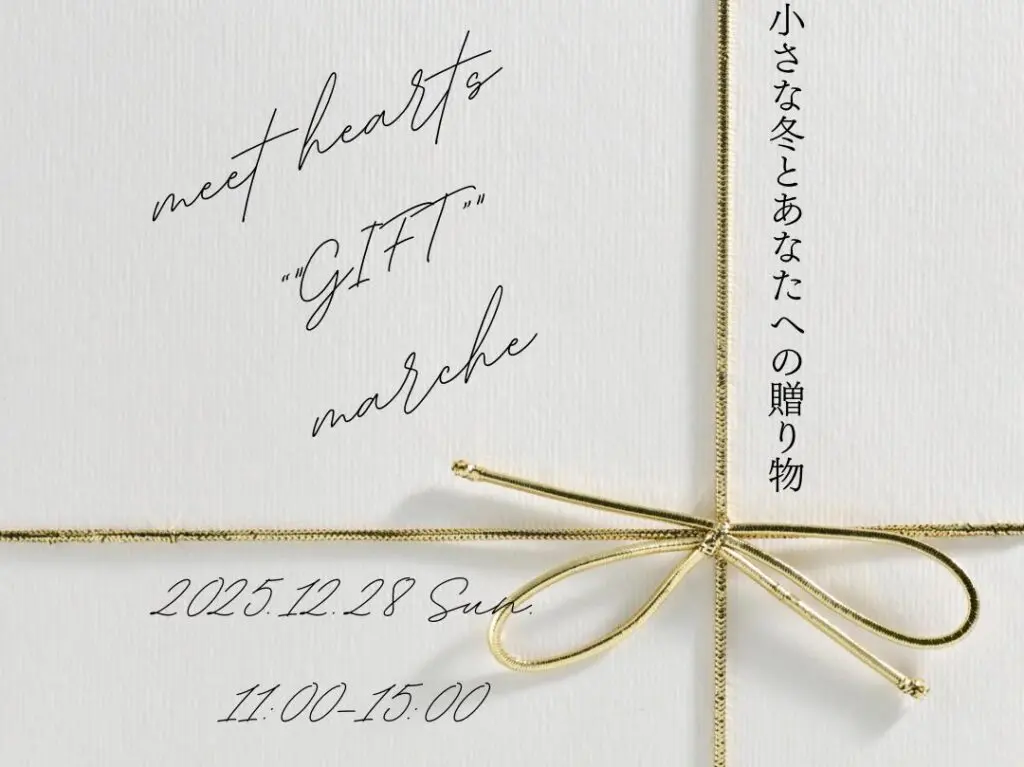 meet hearts
“"GIFT”"
marche
小さな冬とあなたへの贈り物
2025.12.28 Sun.
11:00-15:00